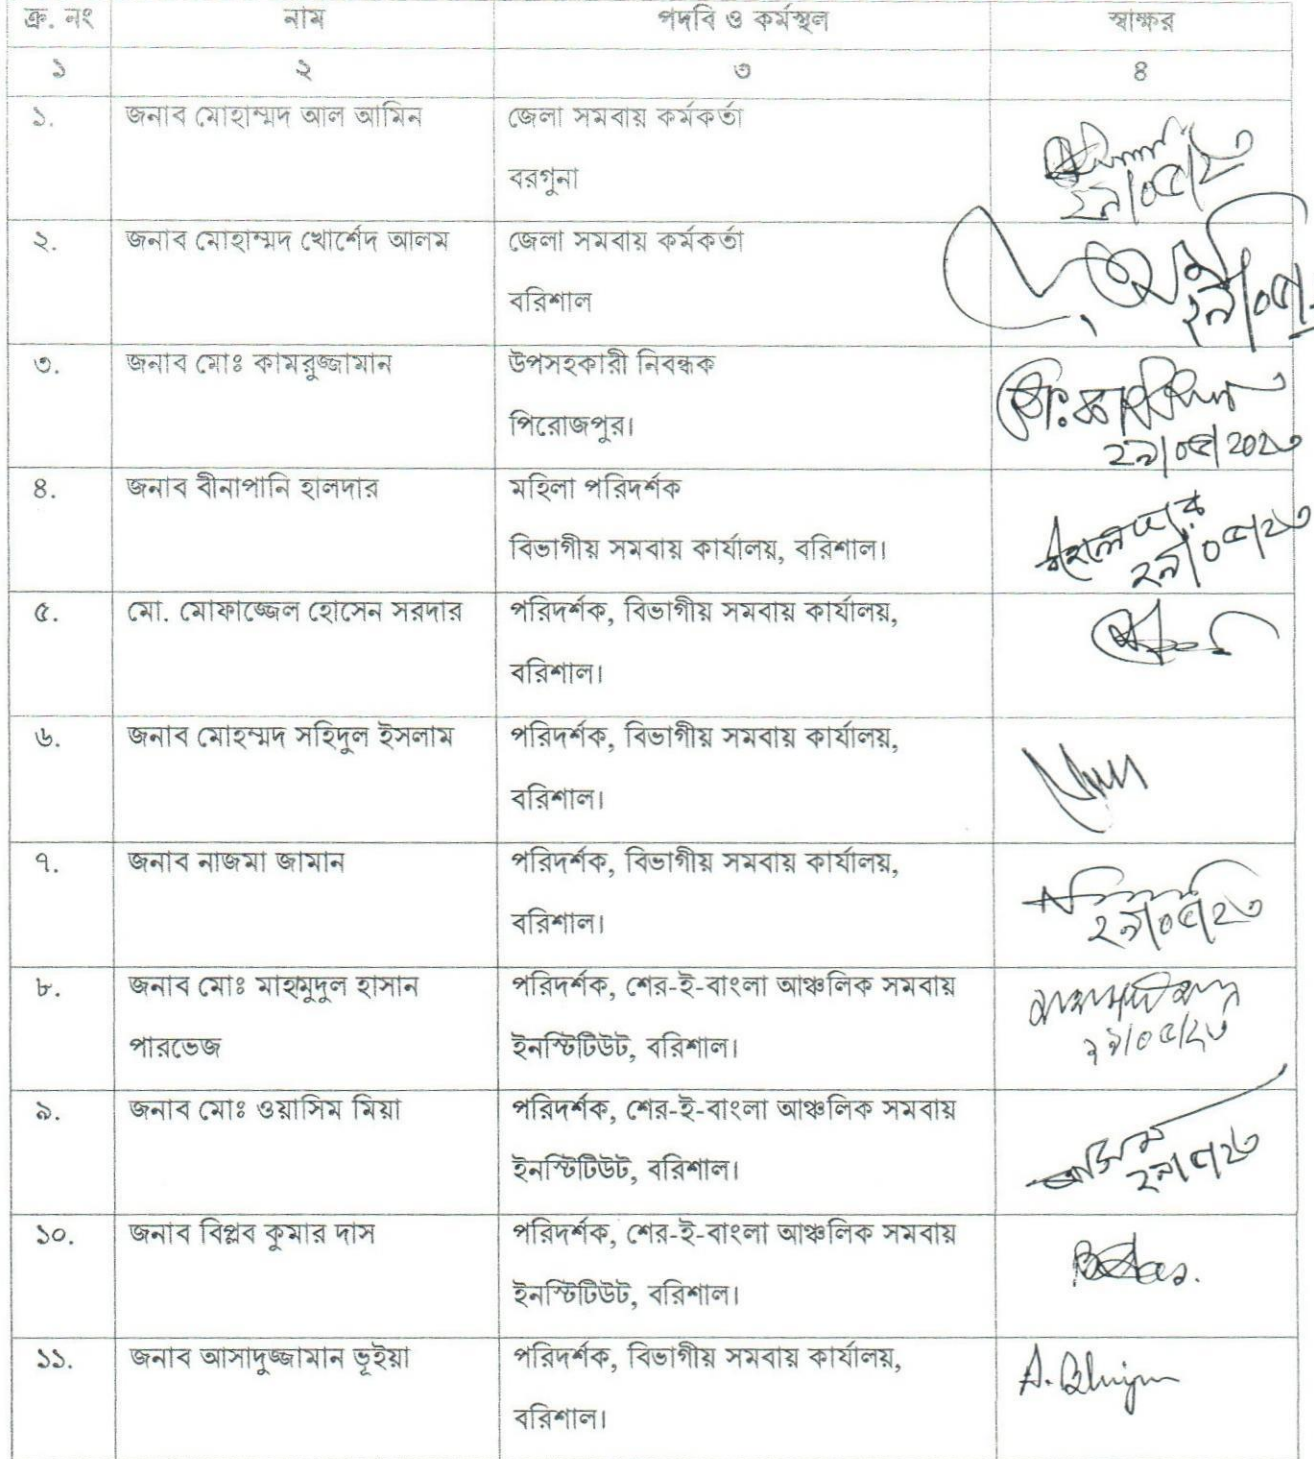 ক্র. নং নাম পদবি ও কর্মস্থল স্বাক্ষর
১ ২ ৩ ৪
১. জনাব মোহাম্মদ আল আমিন জেলা সমবায় কর্মকর্তা
বরগুনা
২৯/০৫/২৩
২. জনাব মোহাম্মদ খোর্শেদ আলম জেলা সমবায় কর্মকর্তা
বরিশাল
৩. জনাব মোঃ কামরুজ্জামান উপসহকারী নিবন্ধক
পিরোজপুর।
২৯/০৫/২০২৩
৪. জনাব বীনাপানি হালদার মহিলা পরিদর্শক
বিভাগীয় সমবায় কার্যালয়, বরিশাল।
২৯/০৫/২৩
৫. মো. মোফাজ্জেল হোসেন সরদার পরিদর্শক, বিভাগীয় সমবায় কার্যালয়,
বরিশাল।
৬. জনাব মোহম্মদ সহিদুল ইসলাম পরিদর্শক, বিভাগীয় সমবায় কার্যালয়,
বরিশাল।
৭. জনাব নাজমা জামান পরিদর্শক, বিভাগীয় সমবায় কার্যালয়,
বরিশাল।
২৯/০৫/২৩
৮. জনাব মোঃ মাহমুদুল হাসান পরিদর্শক, শের-ই-বাংলা আঞ্চলিক সমবায়
পারভেজ ইনস্টিটিউট, বরিশাল।
২৯/০৫/২৩
৯. জনাব মোঃ ওয়াসিম মিয়া পরিদর্শক, শের-ই-বাংলা আঞ্চলিক সমবায়
ইনস্টিটিউট, বরিশাল।
২৯/৫/২৩
১০. জনাব বিপ্লব কুমার দাস পরিদর্শক, শের-ই-বাংলা আঞ্চলিক সমবায়
ইনস্টিটিউট, বরিশাল।
১১. জনাব আসাদুজ্জামান ভূইয়া পরিদর্শক, বিভাগীয় সমবায় কার্যালয়,
বরিশাল।